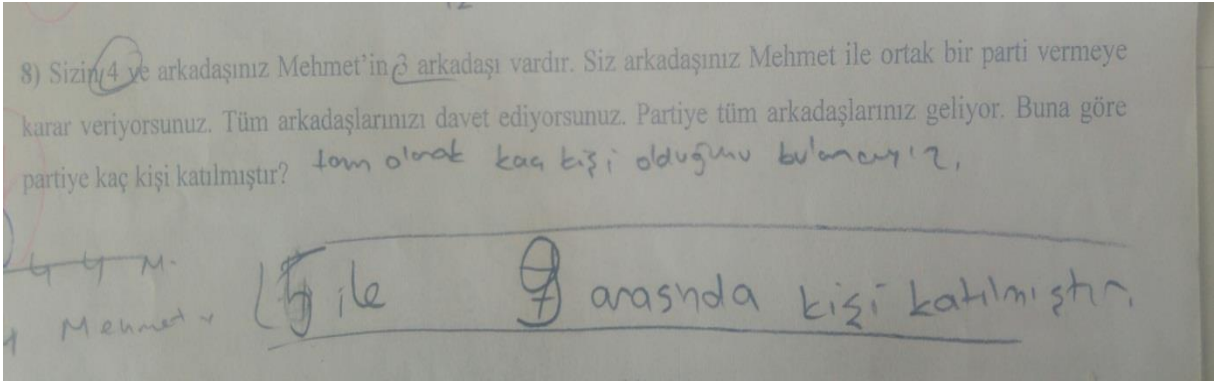 8) Sizin 4 ve arkadaşınız Mehmet'in 3 arkadaşı vardır. Siz arkadaşınız Mehmet ile ortak bir parti vermeye
karar veriyorsunuz. Tüm arkadaşlarınızı davet ediyorsunuz. Partiye tüm arkadaşlarınız geliyor. Buna göre
partiye kaç kişi katılmıştır? tam olarak kaç kişi olduğunu bulamayız.
4 4 M.
Mehmet
5 ile 9 arasında kişi katılmıştır.